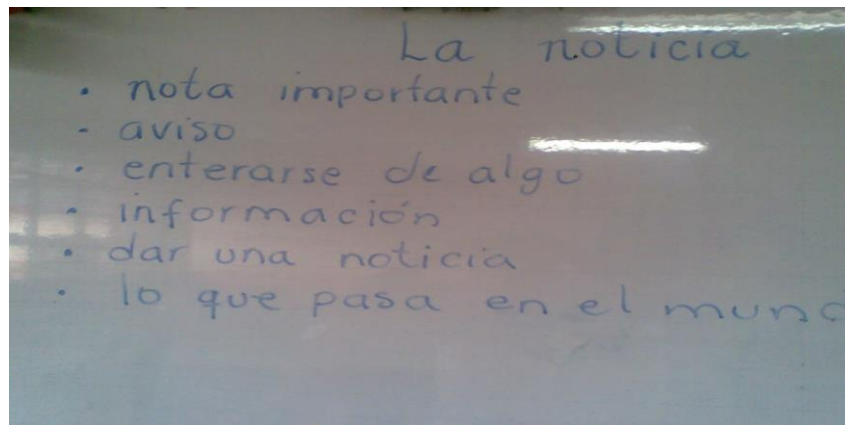 La noticia
· nota importante
- aviso
· enterarse de algo
· información
· dar una noticia
· lo que pasa en el